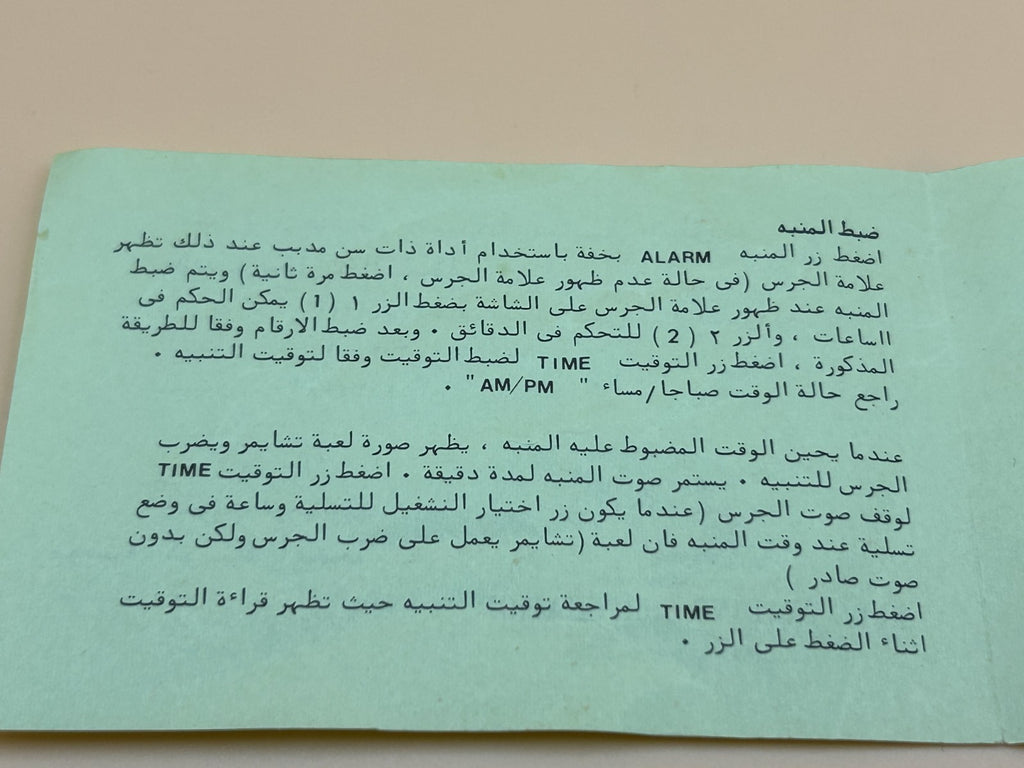 ضبط المنبه
اضغط زر المنبه ALARM بخفة باستخدام أداة ذات سن مدبب عند ذلك تظهر
علامة الجرس (فى حالة عدم ظهور علامة الجرس ، اضغط مرة ثانية) ويتم ضبط
المنبه عند ظهور علامة الجرس على الشاشة بضغط الزر ١ (1) يمكن الحكم فى
االساعات ، وألزر ٢ (2) للتحكم فى الدقائق ٠ وبعد ضبط الارقام وفقا للطريقة
المذكورة ، اضغط زر التوقيت TIME لضبط التوقيت وفقا لتوقيت التنبيه ٠
راجع حالة الوقت صباجا/مساء " AM/PM" ٠
عندما يحين الوقت المضبوط عليه المنبه ، يظهر صورة لعبة تشايمر ويضرب
الجرس للتنبيه ٠ يستمر صوت المنبه لمدة دقيقة ٠ اضغط زر التوقيت TIME
لوقف صوت الجرس (عندما يكون زر اختيار النشغيل للتسلية وساعة فى وضع
تسلية عند وقت المنبه فان لعبة (تشايمر يعمل على ضرب الجرس ولكن بدون
صوت صادر )
اضغط زر التوقيت TIME لمراجعة توقيت التنبيه حيث تظهر قراءة التوقيت
اثناء الضغط على الزر ٠